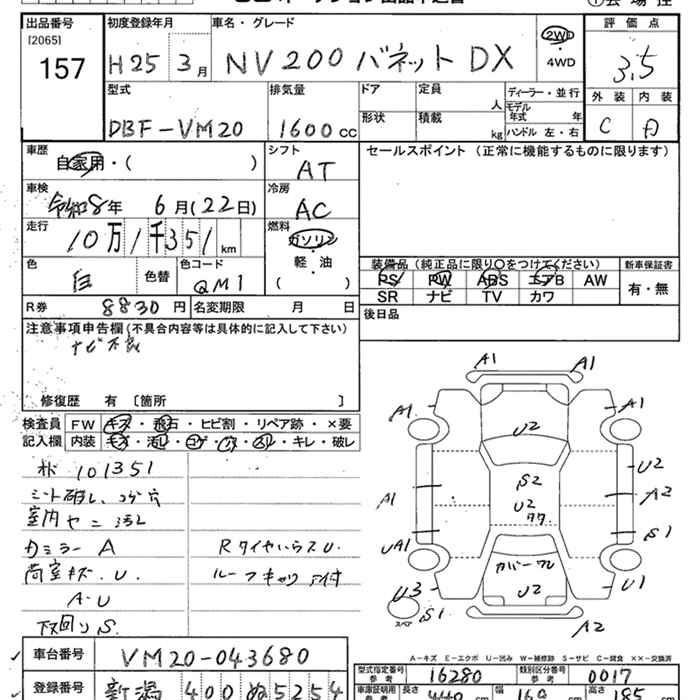 出品番号 初度登録年月 車名・グレード 評価点
[2065]
157 H25年 3月 NV200 バネット DX 2WD ・ 4WD 3.5
型式 排気量 ドア 定員 人 ディーラー・並行 外装 内装
DBF-VM20 1600cc 形状 積載 kg モデル年式 年 ハンドル 左・右 C D
車歴 自家用・( ) シフト AT セールスポイント (正常に機能するものに限ります)
車検 令和8年 6月(22日) 冷房 AC
走行 10万1千351km 燃料 ガソリン 軽・油 ( )
色 白 色替 色コード QM1
装備品 (純正品に限り○をつけてください) 新車保証書
PS PW ABS エアB AW 有・無
SR ナビ TV カワ
R券 8830円 名変期限 月 日
後日品
注意事項申告欄 (不具合内容等は具体的に記入して下さい)
ナビ不良
修復歴 有 [箇所 ]
検査員記入欄 FW キズ・飛石・ヒビ割・リペア跡・×要
内装 キズ・汚レ・コゲ・穴・スレ・キレ・破レ
101351
シート破レ、コゲ穴
室内ヤニ汚レ
カミラー A
荷室キズ、U.
A・U
下回りS.
RタイヤハウスU.
ルーフキャリア付
A1 A1
A1 A1
U2
U2
S2
A1 A2
U2
ワワ S1
UA1
カバーワレ
U3 U2 U1
S1
スペア
A2
A-キズ E-エクボ U-凹み W-補修跡 S-サビ C-腐食 ××-交換済
車台番号 VM20-043680
型式指定番号 参考 16280 類別区分番号 参考 0017
登録番号 新潟 400 ぬ5254
車庫証明用 参考 長さ 440 cm 幅 169 cm 高さ 185 cm